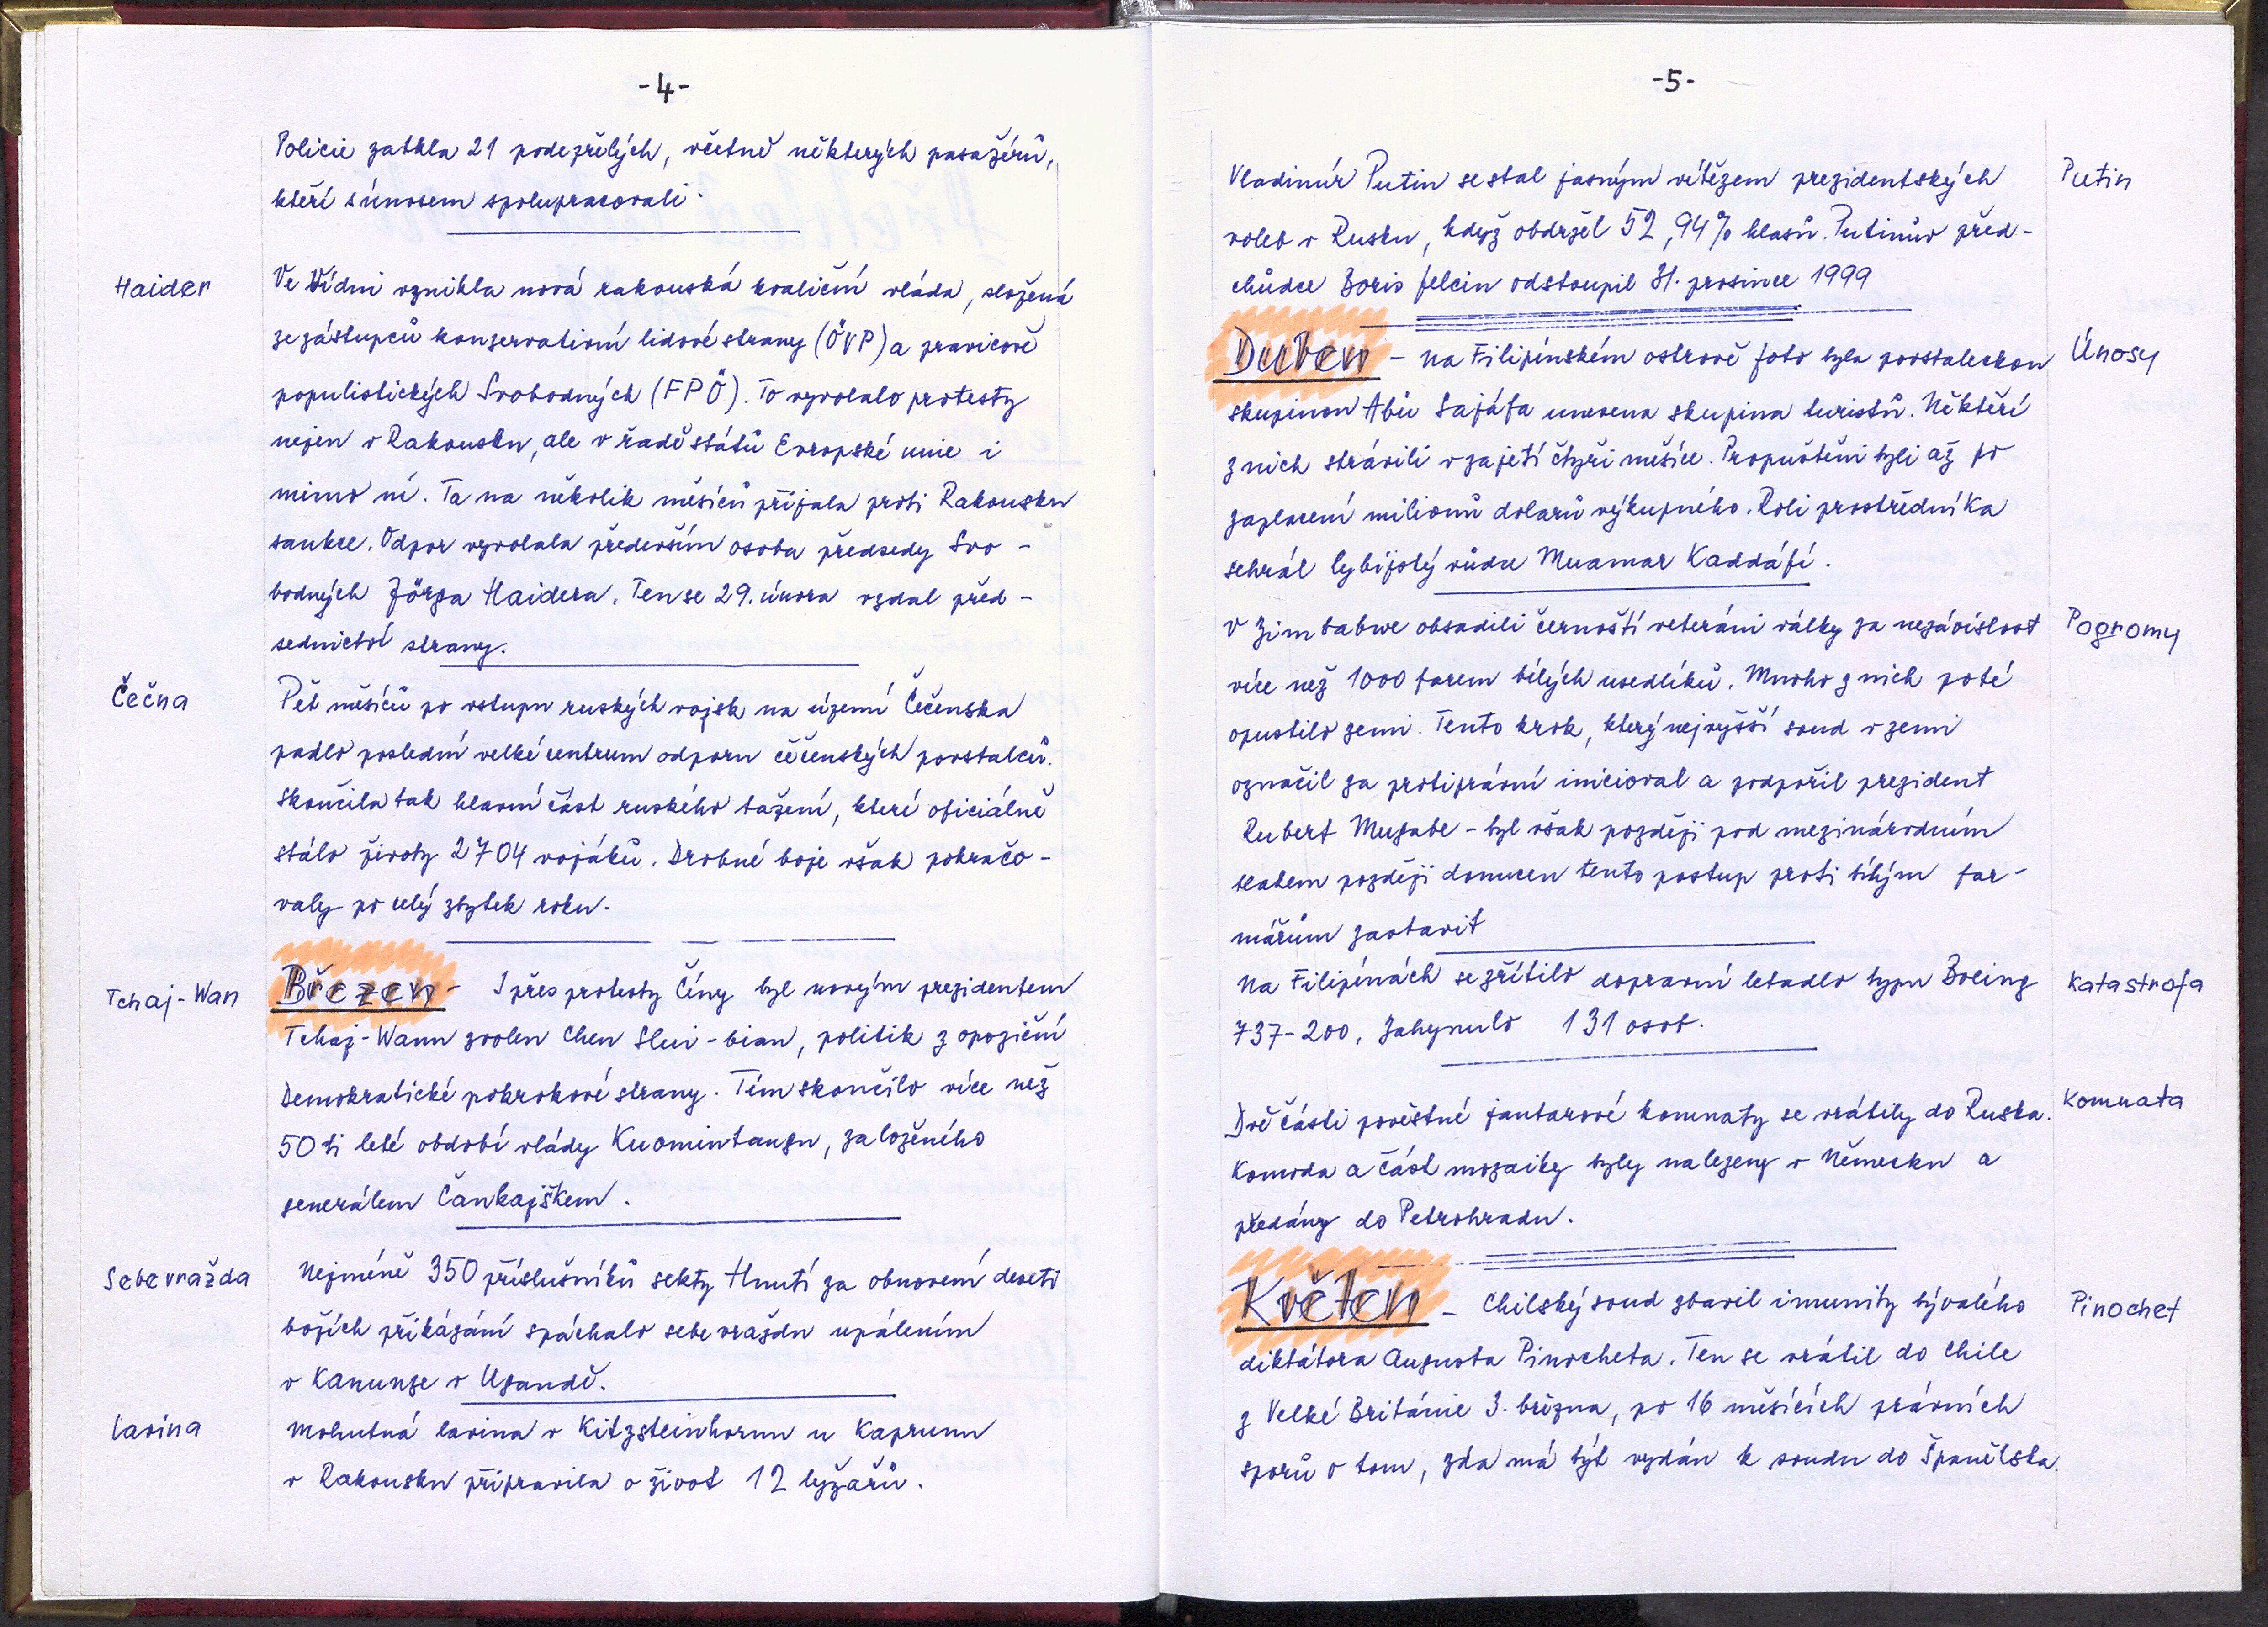 -4-
Policie zatkla 21 podezřelých, včetně některých pasažérů,
kteří s únosem spolupracovali.
Haider
Ve Vídni vznikla nová rakouská koaliční vláda, složená
ze zástupců konzervativní lidové strany (ÖVP) a pravicově
populistických Svobodných (FPÖ). To vyvolalo protesty
nejen v Rakousku, ale v řadě států Evropské unie i
mimo ní. Ta na několik měsíců přijala proti Rakousku
sankce. Odpor vyvolala především osoba předsedy Svo-
bodných Jörga Haidera. Ten se 29. února vzdal před-
sednictví strany.
Čečna
Pět měsíců po vstupu ruských vojsk na území Čečenska
padlo poslední velké centrum odporu čečenských povstalců.
Skončila tak hlavní část ruského tažení, které oficiálně
stálo životy 2704 vojáků. Drobné boje však pokračo-
valy po celý zbytek roku.
Tchaj-Wan
Březen - I přes protesty Číny byl novým prezidentem
Tchaj-Wanu zvolen Chen Shui-bian, politik z opoziční
Demokratické pokrokové strany. Tím skončilo více než
50ti leté období vlády Kuomintangu, založeného
generálem Čankajškem.
Sebevražda
Nejméně 350 příslušníků sekty Hnutí za obnovení deseti
božích přikázání spáchalo sebevraždu upálením
v Kanunge v Ugandě.
lavina
Mohutná lavina v Kitzsteinhornu u Kaprunu
v Rakousku připravila o život 12 lyžařů.
-5-
Vladimír Putin se stal jasným vítězem prezidentských
Putin
voleb v Rusku, když obdržel 52,94% hlasů. Putinův před-
chůdce Boris Jelcin odstoupil 31. prosince 1999
Duben - na Filipínském ostrově Joto byla povstaleckou
Únosy
skupinou Abú Sajáfa unesena skupina turistů. Někteří
z nich strávili v zajetí čtyři měsíce. Propuštěni byli až po
zaplacení milionů dolarů výkupného. Roli prostředníka
sehrál lybijský vůdce Muamar Kaddáfí.
V Zimbabwe obsadili černoští veteráni války za nezávislost
Pogromy
více než 1000 farem bílých usedlíků. Mnoho z nich poté
opustilo zemi. Tento krok, který nejvyšší soud v zemi
označil za protiprávní inicioval a podpořil prezident
Rubert Mugabe - byl však později pod mezinárodním
tlakem později donucen tento postup proti bílým far-
mářům zastavit
Na Filipínách se zřítilo dopravní letadlo typu Boeing
Katastrofa
737-200, Zahynulo 131 osob.
Dvě části pověstné jantarové komnaty se vrátily do Ruska.
Komnata
Komoda a část mozaiky byly nalezeny v Německu a
předány do Petrohradu.
Květen - Chilský soud zbavil imunity bývalého
Pinochet
diktátora Augusta Pinocheta. Ten se vrátil do Chile
z Velké Británie 3. března, po 16 měsících právních
sporů o tom, zda má být vydán k soudu do Španělska.